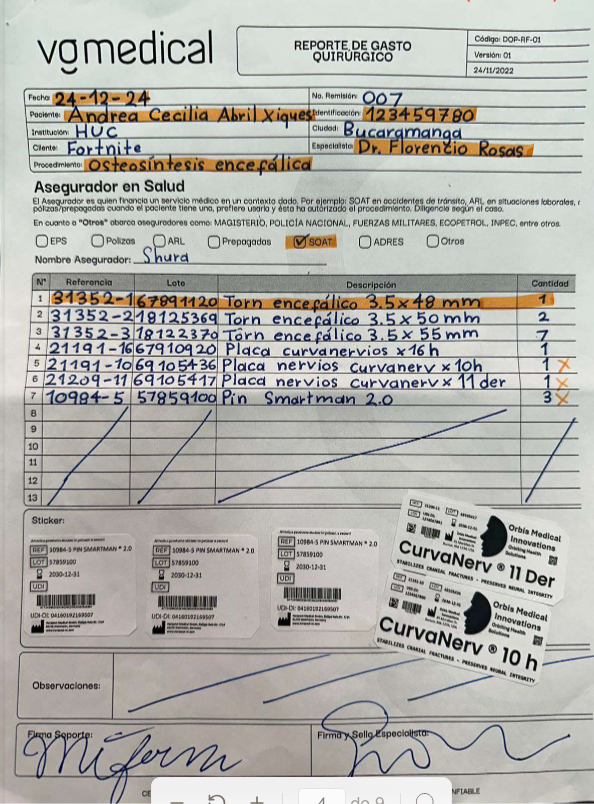 vgmedical
REPORTE DE GASTO QUIRÚRGICO
Código: DOP-RF-01
Versión: 01
24/11/2022
Fecha: 24-12-24 No. Remisión: 007
Paciente: Andrea Cecilia Abril Xiques Identificación: 123459780
Institución: HUC Ciudad: Bucaramanga
Cliente: Fortnite Especialista: Dr. Florencio Rosas
Procedimiento: Osteosíntesis encefálica
Asegurador en Salud
El Asegurador es quien financia un servicio médico en un contexto dado. Por ejemplo: SOAT en accidentes de tránsito, ARL en situaciones laborales,
pólizas/prepagadas cuando el paciente tiene una, prefiere usarla y ésta ha autorizado el procedimiento. Diligencie según el caso.
En cuanto a "Otros" abarca aseguradores como: MAGISTERIO, POLICÍA NACIONAL, FUERZAS MILITARES, ECOPETROL, INPEC, entre otros.
EPS Polizas ARL Prepagadas SOAT ADRES Otros
Nombre Asegurador: Shura
N° Referencia Lote Descripción Cantidad
1 31352-1 67891120 Torn encefálico 3.5x48 mm 1
2 31352-2 18125369 Torn encefálico 3.5x50 mm 2
3 31352-3 18122370 Torn encefálico 3.5x55 mm 7
4 21191-16 67910920 Placa curvanervios x16h 1
5 21191-10 69105436 Placa nervios curvanerv x10h 1 x
6 21209-11 69105417 Placa nervios curvanerv x 11 der 1 x
7 10984-5 57859100 Pin Smartman 2.0 3 x
8
9
10
11
12
13
Sticker:
REF 10984-5 PIN SMARTMAN * 2.0
LOT 57859100
2030-12-31
UDI
UDI-DI: 04160192169507
REF 10984-5 PIN SMARTMAN * 2.0
LOT 57859100
2030-12-31
UDI
UDI-DI: 04160192169507
REF 10984-5 PIN SMARTMAN * 2.0
LOT 57859100
2030-12-31
UDI
UDI-DI: 04160192169507
Orbis Medical Innovations
Orbiting Health Solutions
CurvaNerv ® 11 Der
STABILIZES CRANIAL FRACTURES - PRESERVES NEURAL INTEGRITY
Orbis Medical Innovations
Orbiting Health Solutions
CurvaNerv ® 10 h
STABILIZES CRANIAL FRACTURES - PRESERVES NEURAL INTEGRITY
Observaciones:
Firma Soporte: Firma y Sello Especialista:
4 de 9